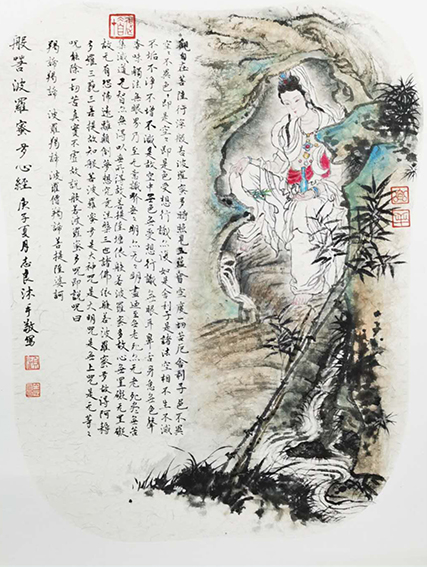 觀自在菩薩行深般若波羅蜜多時照見五蘊皆空度一切苦厄舍利子色不異
空〻不異色色即是空〻即是色受想行識亦復如是舍利子是諸法空相不生不滅
不垢不淨不增不減是故空中无色无受想行識无眼耳鼻舌身意无色聲
香味觸法无眼界乃至无意識界无无明亦无无明盡乃至无老死亦无老死盡无苦
集滅道无智亦无得以无所得故菩提薩埵依般若波羅蜜多故心无罣礙无罣礙
故无有恐怖遠離顛倒夢想究竟涅槃三世諸佛依般若波羅蜜多故得阿耨
多羅三藐三菩提故知般若波羅蜜多是大神咒是大明咒是无上咒是无等〻
咒能除一切苦真實不虛故說般若波羅蜜多咒即說咒曰
揭諦揭諦 波羅揭諦 波羅僧揭諦 菩提薩婆訶
般若波羅蜜多心經 庚子夏月志良沐手敬寫